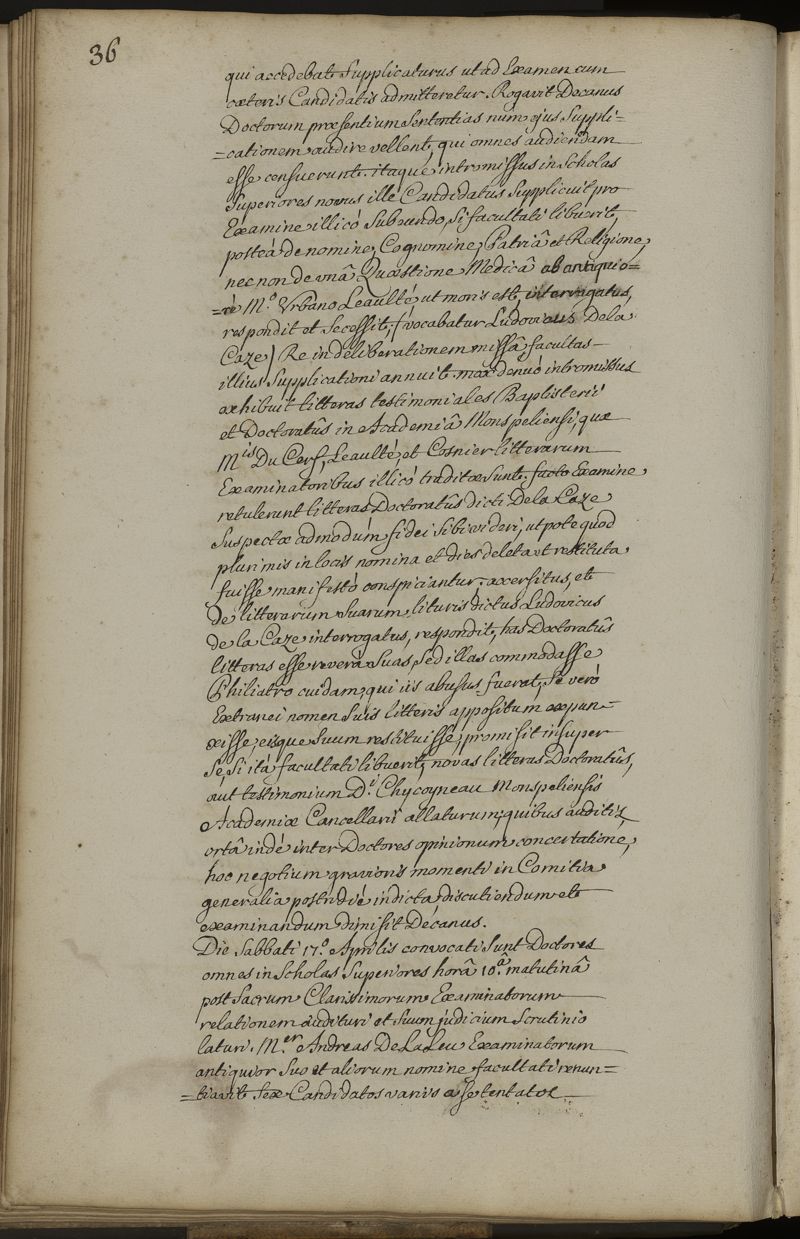 36
qui accedebat Supplicaturus ut ad Examen cum
cæteris Candidatis admitteretur. Rogavit Decanus
Doctorum præsentium Sententias num ejus Suppli=
=cationem audire vellent, qui omnes audiendam
esse censuerunt. itaque intromissus in Scholas
Superiores novus ille Candidatus Supplicuit pro
Examine illicó Subeundo, Si facultati libuerit,
posteá de nomine, Cognomine, Patriâ et Religione,
nec non de unâ Quæstione Medicâ ab antiquio=
=re M.º Urbano Leaulté, ut moris est, interrogatus,
respondit et Secessit, (vocabatur Ludovicus De la
Caze) Re in deliberationem missâ, facultas
illius Supplicationi annuit. mox denuó intromissus
exhibuit litteras testimoniales Baptisterii
et Doctoratûs in Academiâ Monspeliensi, quæ
M.is Du Cerf, Leaulté, et Cosnier litterarum
Examinatoribus illicó traditæ Sunt. facto Examine
retulerunt litteras Doctoratûs dicti De la Caze
Suspectæ admodúm fidei Sibi videri, utpote quod
plurimis in locis nomina et dies deleta et restituta
fuisse manifestó conspiciantur. axersitus, et
de litterarum Suarum lituris dictus Ludovicus
de la Caze interrogatus, respondit, has Doctoratûs
litteras esse reverâ Suas, Sed illas commodasse
Philiatro cuidam, qui iis abusus fuerat, Se veró
Extranei nomen Suis litteris appositum expun=
xisse, eisque Suum restituisse, promisit insuper
Se, Si itá facultati libuerit, novas litteras Doctoratûs,
aut testimonium D.i Chycoyneau Monspeliensis
Academiæ Cancellarii allaturum; quibus auditis
ortâ indé inter Doctores opinionum concertatione,
hoc negotium gravioris momenti in Comitia
generalia postridié indicta discutiendum et
examinandum dimisit Decanus.
Die Sabbati 17.º Aprilis convocati Sunt Doctores
omnes in Scholas Superiores horâ 10.ª matutinâ
post Sacrum Clarissimorum Examinatorum
relationem audituri et Suum judicium Scrutinio
laturi. M.er Andreas De La Leu Examinatorum
antiquior Suo et aliorum nomine facultati renun=
=tiavit Sex Candidatos variis a se tentatos